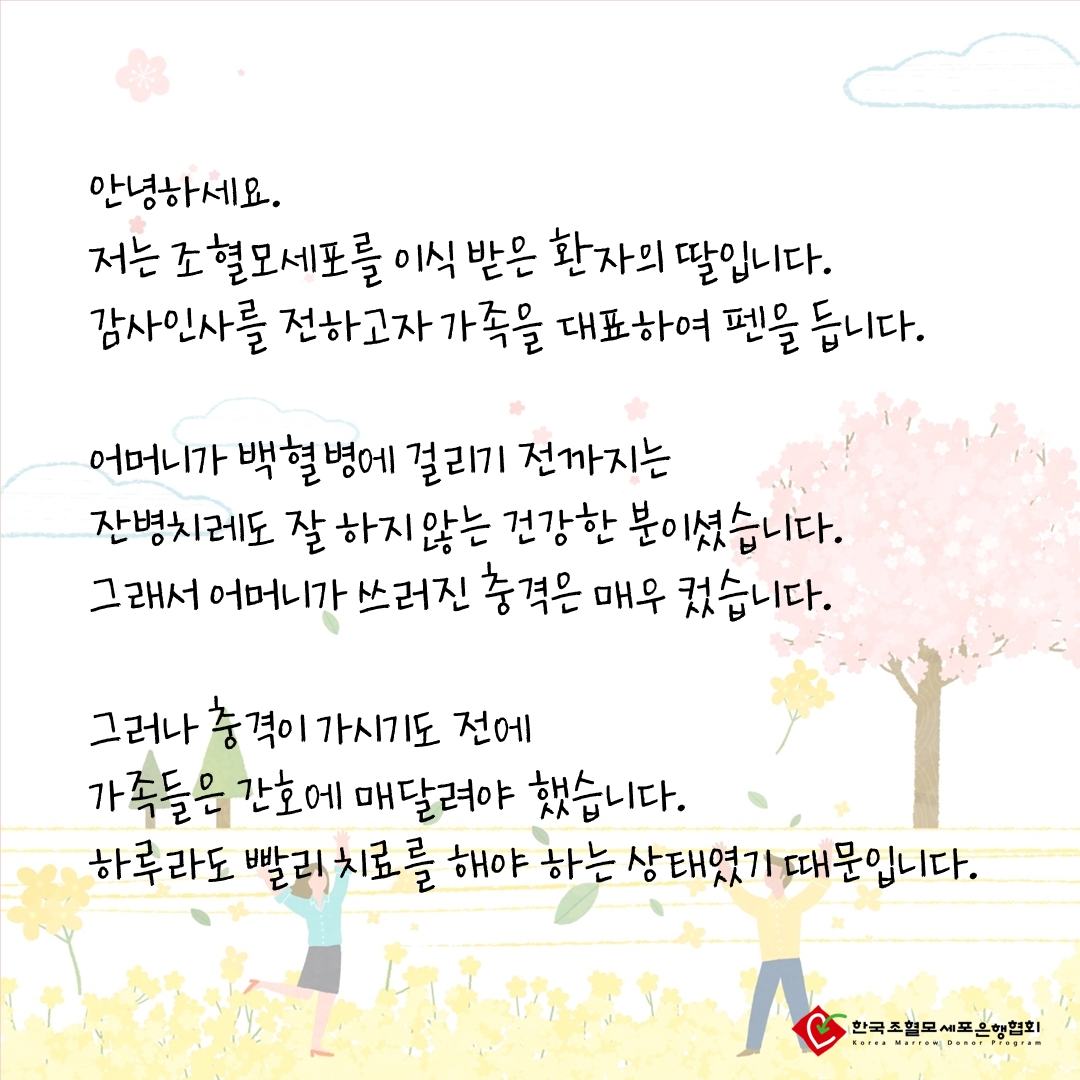 안녕하세요.
저는 조혈모세포를 이식 받은 환자의 딸입니다.
감사인사를 전하고자 가족을 대표하여 펜을 듭니다.
어머니가 백혈병에 걸리기 전까지는
잔병치레도 잘 하지않는 건강한 분이셨습니다.
그래서 어머니가 쓰러진 충격은 매우 컸습니다.
그러나 충격이 가시기도 전에
가족들은 간호에 매달려야 했습니다.
하루라도 빨리 치료를 해야 하는 상태였기 때문입니다.
한국조혈모세포은행협회
Korea Marrow Donor Program